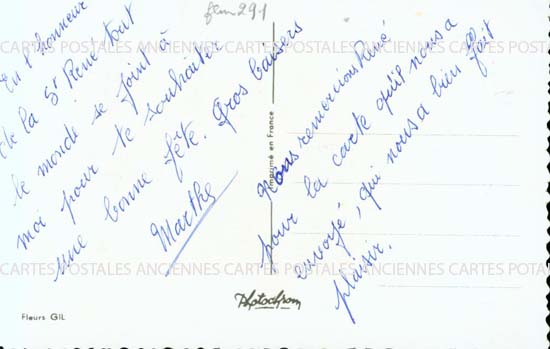 fem 291
En l'honneur
de la St René tout
le monde se joint à
moi pour te souhaiter
une bonne fête. Gros baisers
Marthe
Nous remercions René
pour la carte qu'il nous a
envoyé, qui nous a bien fait
plaisir.
Imprimé en France
Photochrom
Fleurs GIL
CARTES POSTALES ANCIENNES CARTES POSTALES ANCIENNES CARTES POSTALES
CARTES POSTALES ANCIENNES CARTES POSTALES ANCIENNES CARTES POSTA